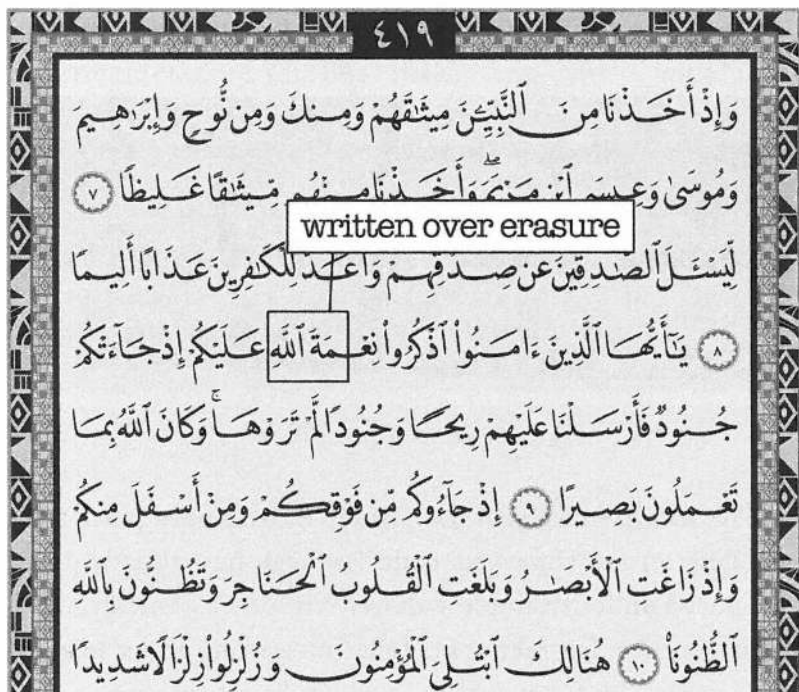 ٤١٩
وَإِذْ أَخَذْنَا مِنَ ٱلنَّبِيِّـۧنَ مِيثَٰقَهُمْ وَمِنكَ وَمِن نُّوحٍ وَإِبْرَٰهِيمَ
وَمُوسَىٰ وَعِيسَى ٱبْنِ مَرْيَمَ ۖ وَأَخَذْنَا مِنْهُم مِّيثَٰقًا غَلِيظًا ٧
written over erasure
لِّيَسْـَٔلَ ٱلصَّٰدِقِينَ عَن صِدْقِهِمْ ۚ وَأَعَدَّ لِلْكَٰفِرِينَ عَذَابًا أَلِيمًا
٨ يَٰٓأَيُّهَا ٱلَّذِينَ ءَامَنُوا۟ ٱذْكُرُوا۟ نِعْمَةَ ٱللَّهِ عَلَيْكُمْ إِذْ جَآءَتْكُمْ
جُنُودٌ فَأَرْسَلْنَا عَلَيْهِمْ رِيحًا وَجُنُودًا لَّمْ تَرَوْهَا ۚ وَكَانَ ٱللَّهُ بِمَا
تَعْمَلُونَ بَصِيرًا ٩ إِذْ جَآءُوكُم مِّن فَوْقِكُمْ وَمِنْ أَسْفَلَ مِنكُمْ
وَإِذْ زَاغَتِ ٱلْأَبْصَٰرُ وَبَلَغَتِ ٱلْقُلُوبُ ٱلْحَنَاجِرَ وَتَظُنُّونَ بِٱللَّهِ
ٱلظُّنُونَا۠ ١٠ هُنَالِكَ ٱبْتُلِىَ ٱلْمُؤْمِنُونَ وَزُلْزِلُوا۟ زِلْزَالًا شَدِيدًا